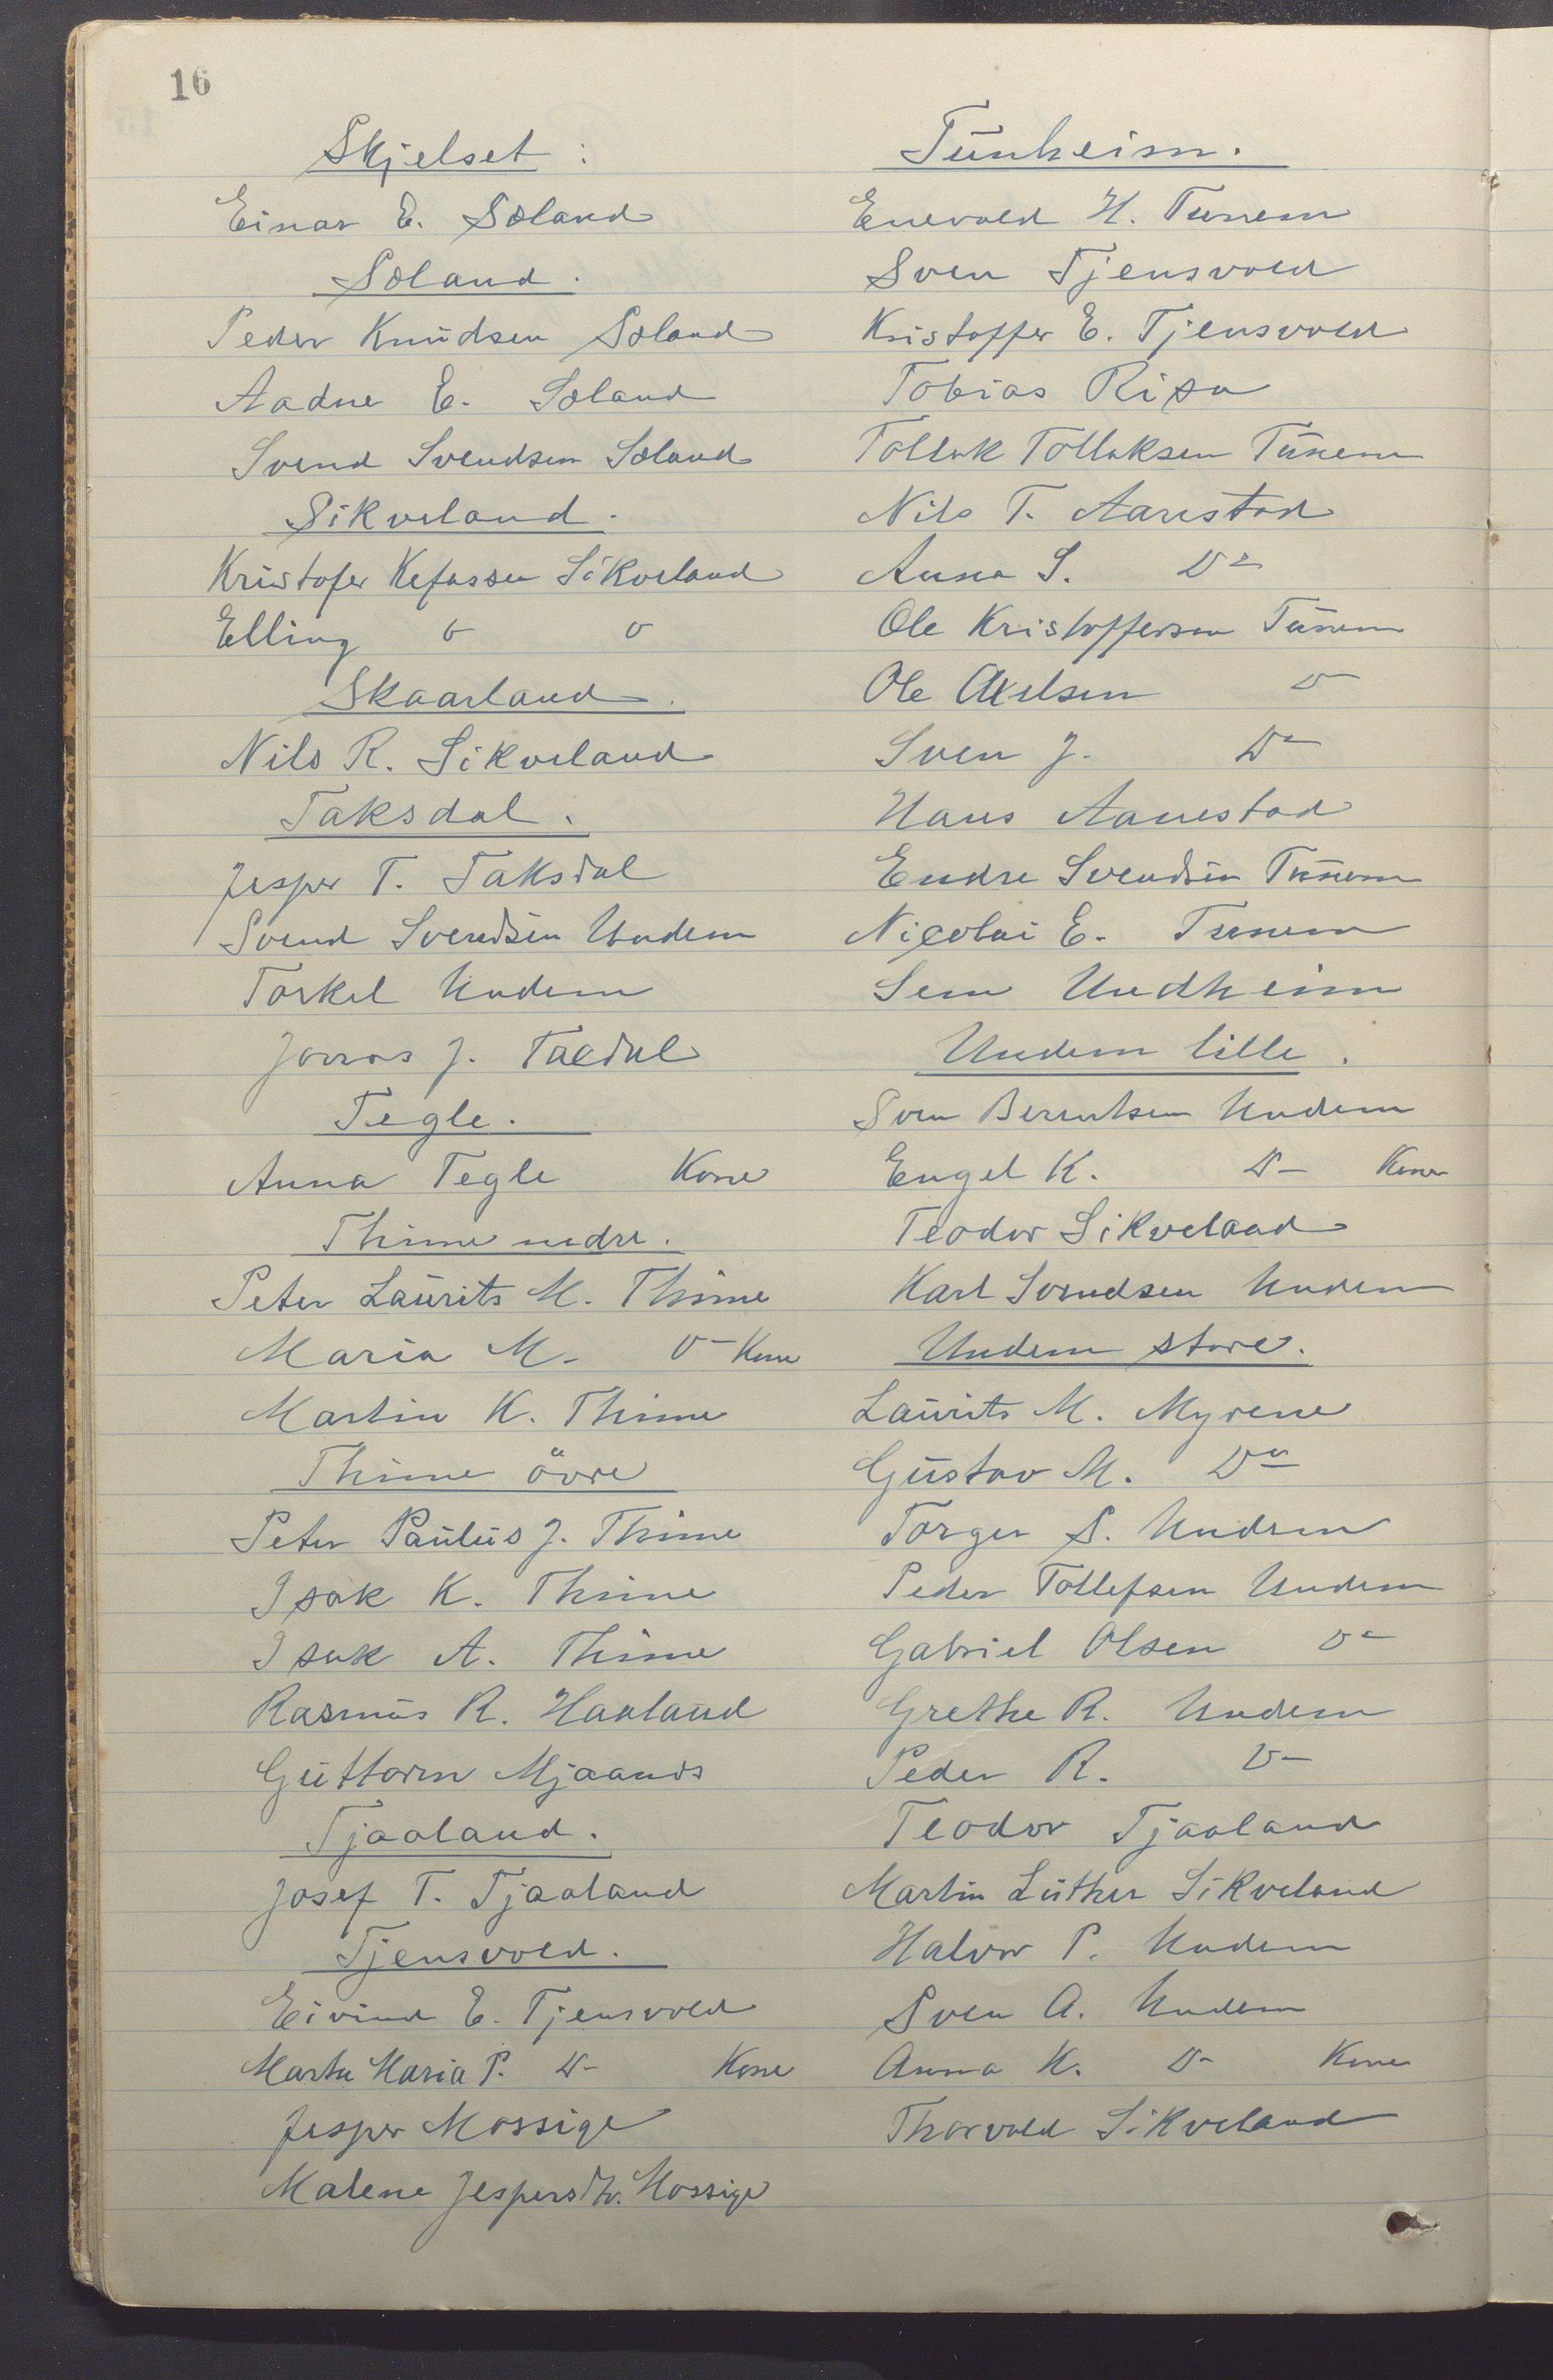 16
Skjelset :
Einar E. Sæland
Sæland.
Peder Knudsen Sæland
Aadne E. Sæland
Svend Svendsen Sæland
Sikveland.
Kristofer Kefassen Sikveland
Elling D D
Skaarland.
Nils R. Sikveland
Taksdal.
Jesper T. Taksdal
Svend Svendsen Undem
Torkel Undem
Jonas J. Taxdal
Tegle.
Anna Tegle Kone
Thime nedre.
Peter Laurits M. Thime
Maria M. D- Kone
Martin K. Thime
Thime övre
Peter Paulus J. Thime
Isak K. Thime
Isak A. Thime
Rasmus R. Haaland
Guttorm Mjaanes
Tjaaland.
Josef T. Tjaaland
Tjensvold.
Eivind E. Tjensvold
Marta Maria P. D- Kone
Jesper Mossige
Malene Jespersdtr. Mossige
Tunheim.
Enevald H. Tunem
Sven Tjensvold
Kristoffer E. Tjensvold
Tobias Risa
Tollak Tollaksen Tunem
Nils T. Aanestad
Anna S. Do
Ole Kristoffersen Tunem
Ole Axelsen D-
Sven J. Do
Hans Aanestad
Endre Svendsen Tunem
Nicolai E. Tunem
Sem Undheim
Undem lille.
Sven Berentsen Undem
Engel K. D- Kone
Teodor Sikveland
Karl Svendsen Undem
Undem store.
Laurits M. Myrene
Gustav M. Do
Torger S. Undem
Peder Tollefsen Undem
Gabriel Olsen Do
Grethe R. Undem
Peder R. D-
Teodor Tjaaland
Martin Luther Sikveland
Halvor P. Undem
Sven A. Undem
Anna K. D- Kone
Thorvald Sikveland